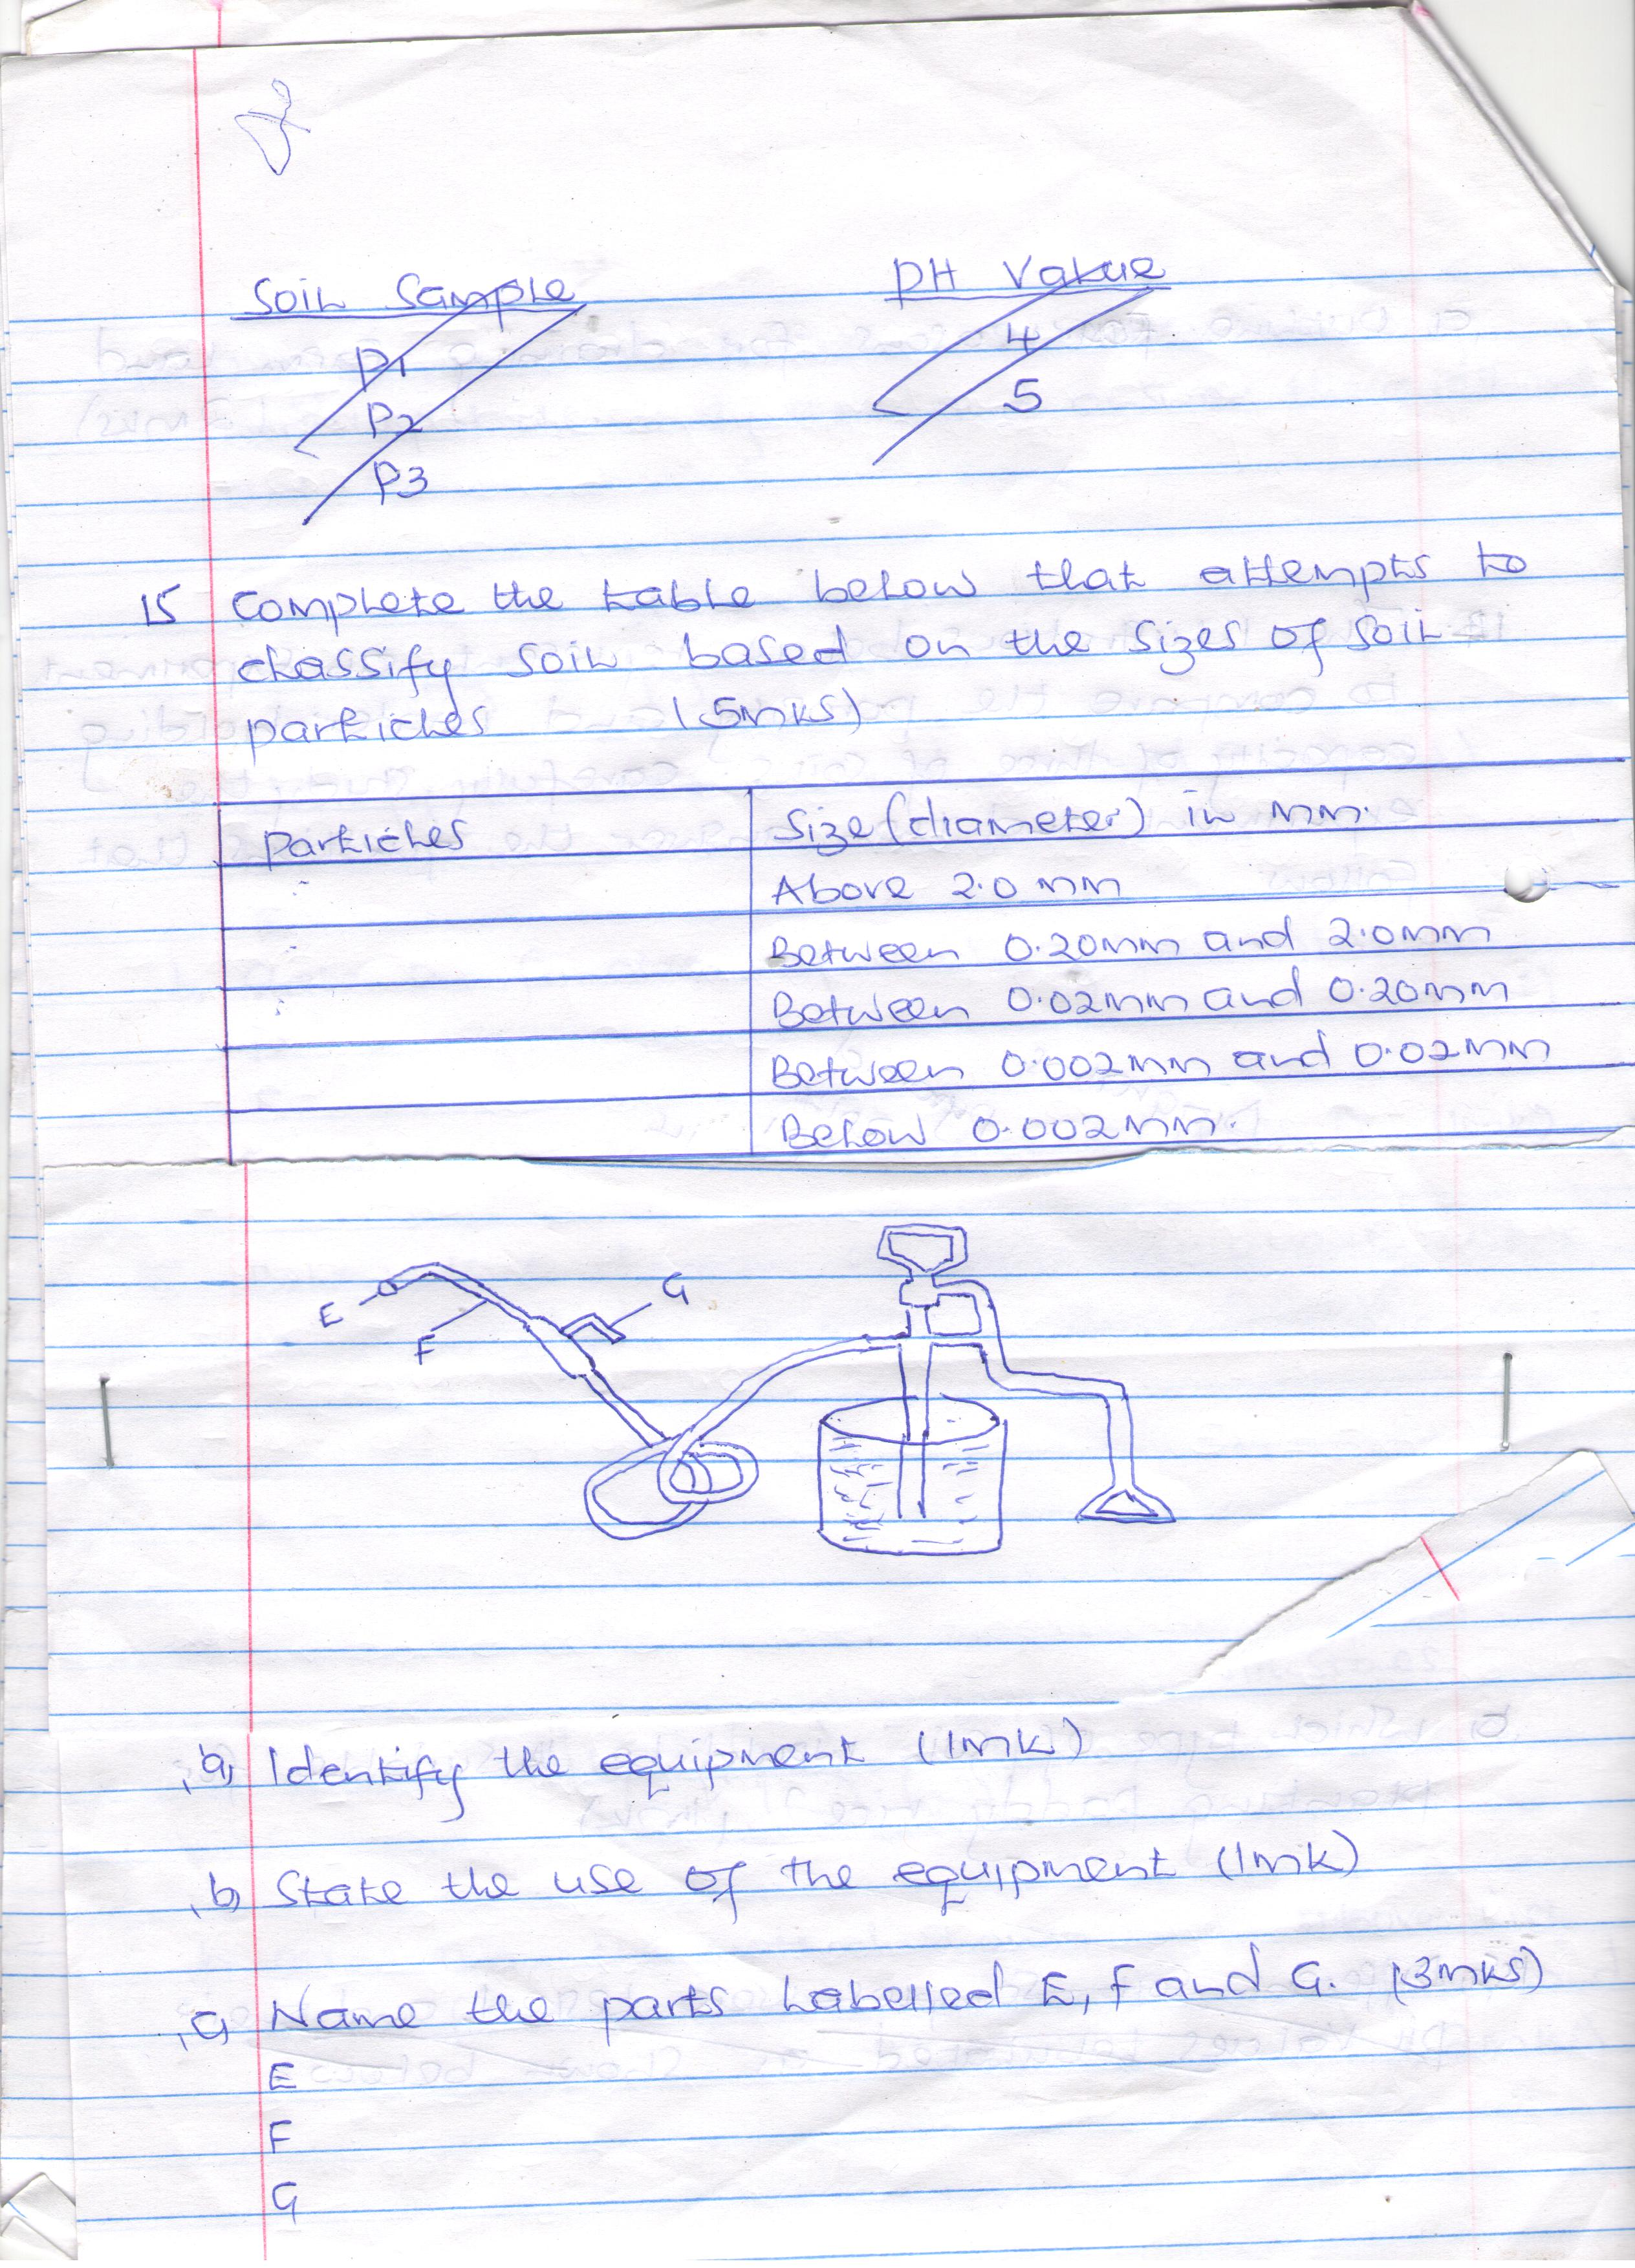 Soil Sample PH Value
P1 4
P2 5
P3
15 Complete the table below that attempts to
classify soil based on the sizes of soil
particles (5mks)
Particles Size (diameter) in mm.
Above 2.0 mm
Between 0.20mm and 2.0mm
Between 0.02mm and 0.20mm
Between 0.002mm and 0.02mm
Below 0.002mm.
E G
F
a) Identify the equipment (1mk)
b) State the use of the equipment (1mk)
c) Name the parts labelled E, F and G. (3mks)
E
F
G